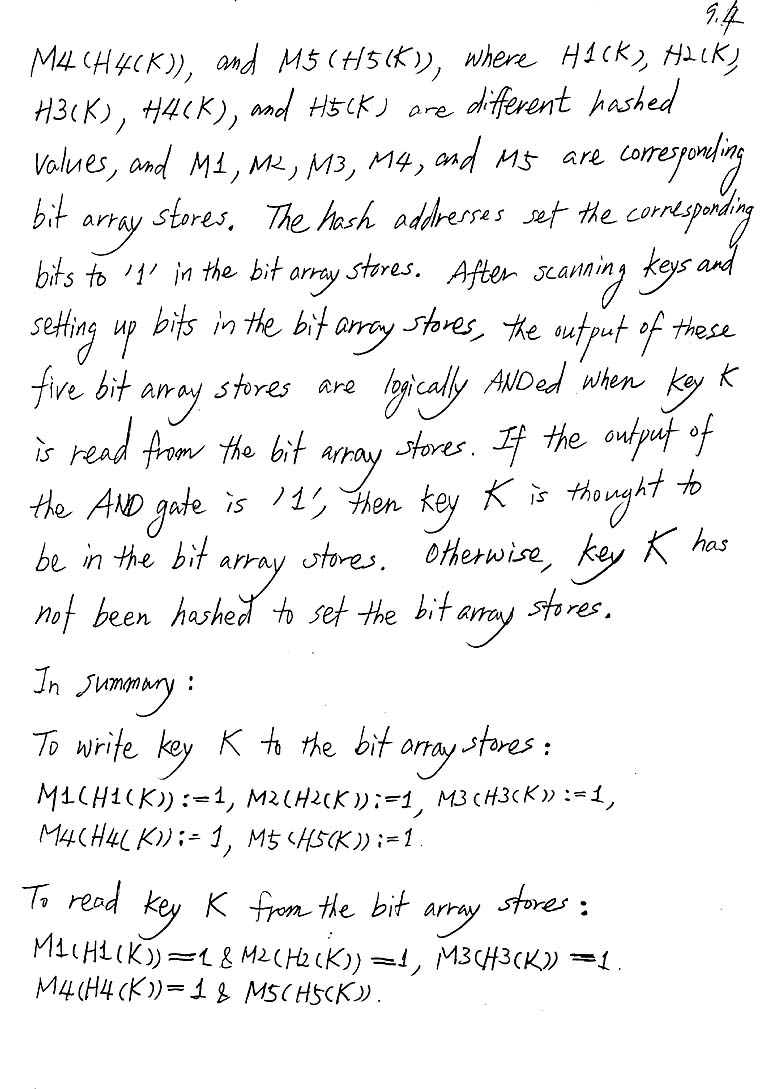 9.4
M4(H4(K)), and M5(H5(K)), where H1(K), H2(K),
H3(K), H4(K), and H5(K) are different hashed
values, and M1, M2, M3, M4, and M5 are corresponding
bit array stores. The hash addresses set the corresponding
bits to '1' in the bit array stores. After scanning keys and
setting up bits in the bit array stores, the output of these
five bit array stores are logically ANDed when key K
is read from the bit array stores. If the output of
the AND gate is '1', then key K is thought to
be in the bit array stores. Otherwise, key K has
not been hashed to set the bit array stores.
In summary:
To write key K to the bit array stores:
M1(H1(K)):=1, M2(H2(K)):=1, M3(H3(K)):=1,
M4(H4(K)):=1, M5(H5(K)):=1.
To read key K from the bit array stores:
M1(H1(K))=1 & M2(H2(K))=1, M3(H3(K))=1.
M4(H4(K))=1 & M5(H5(K)).